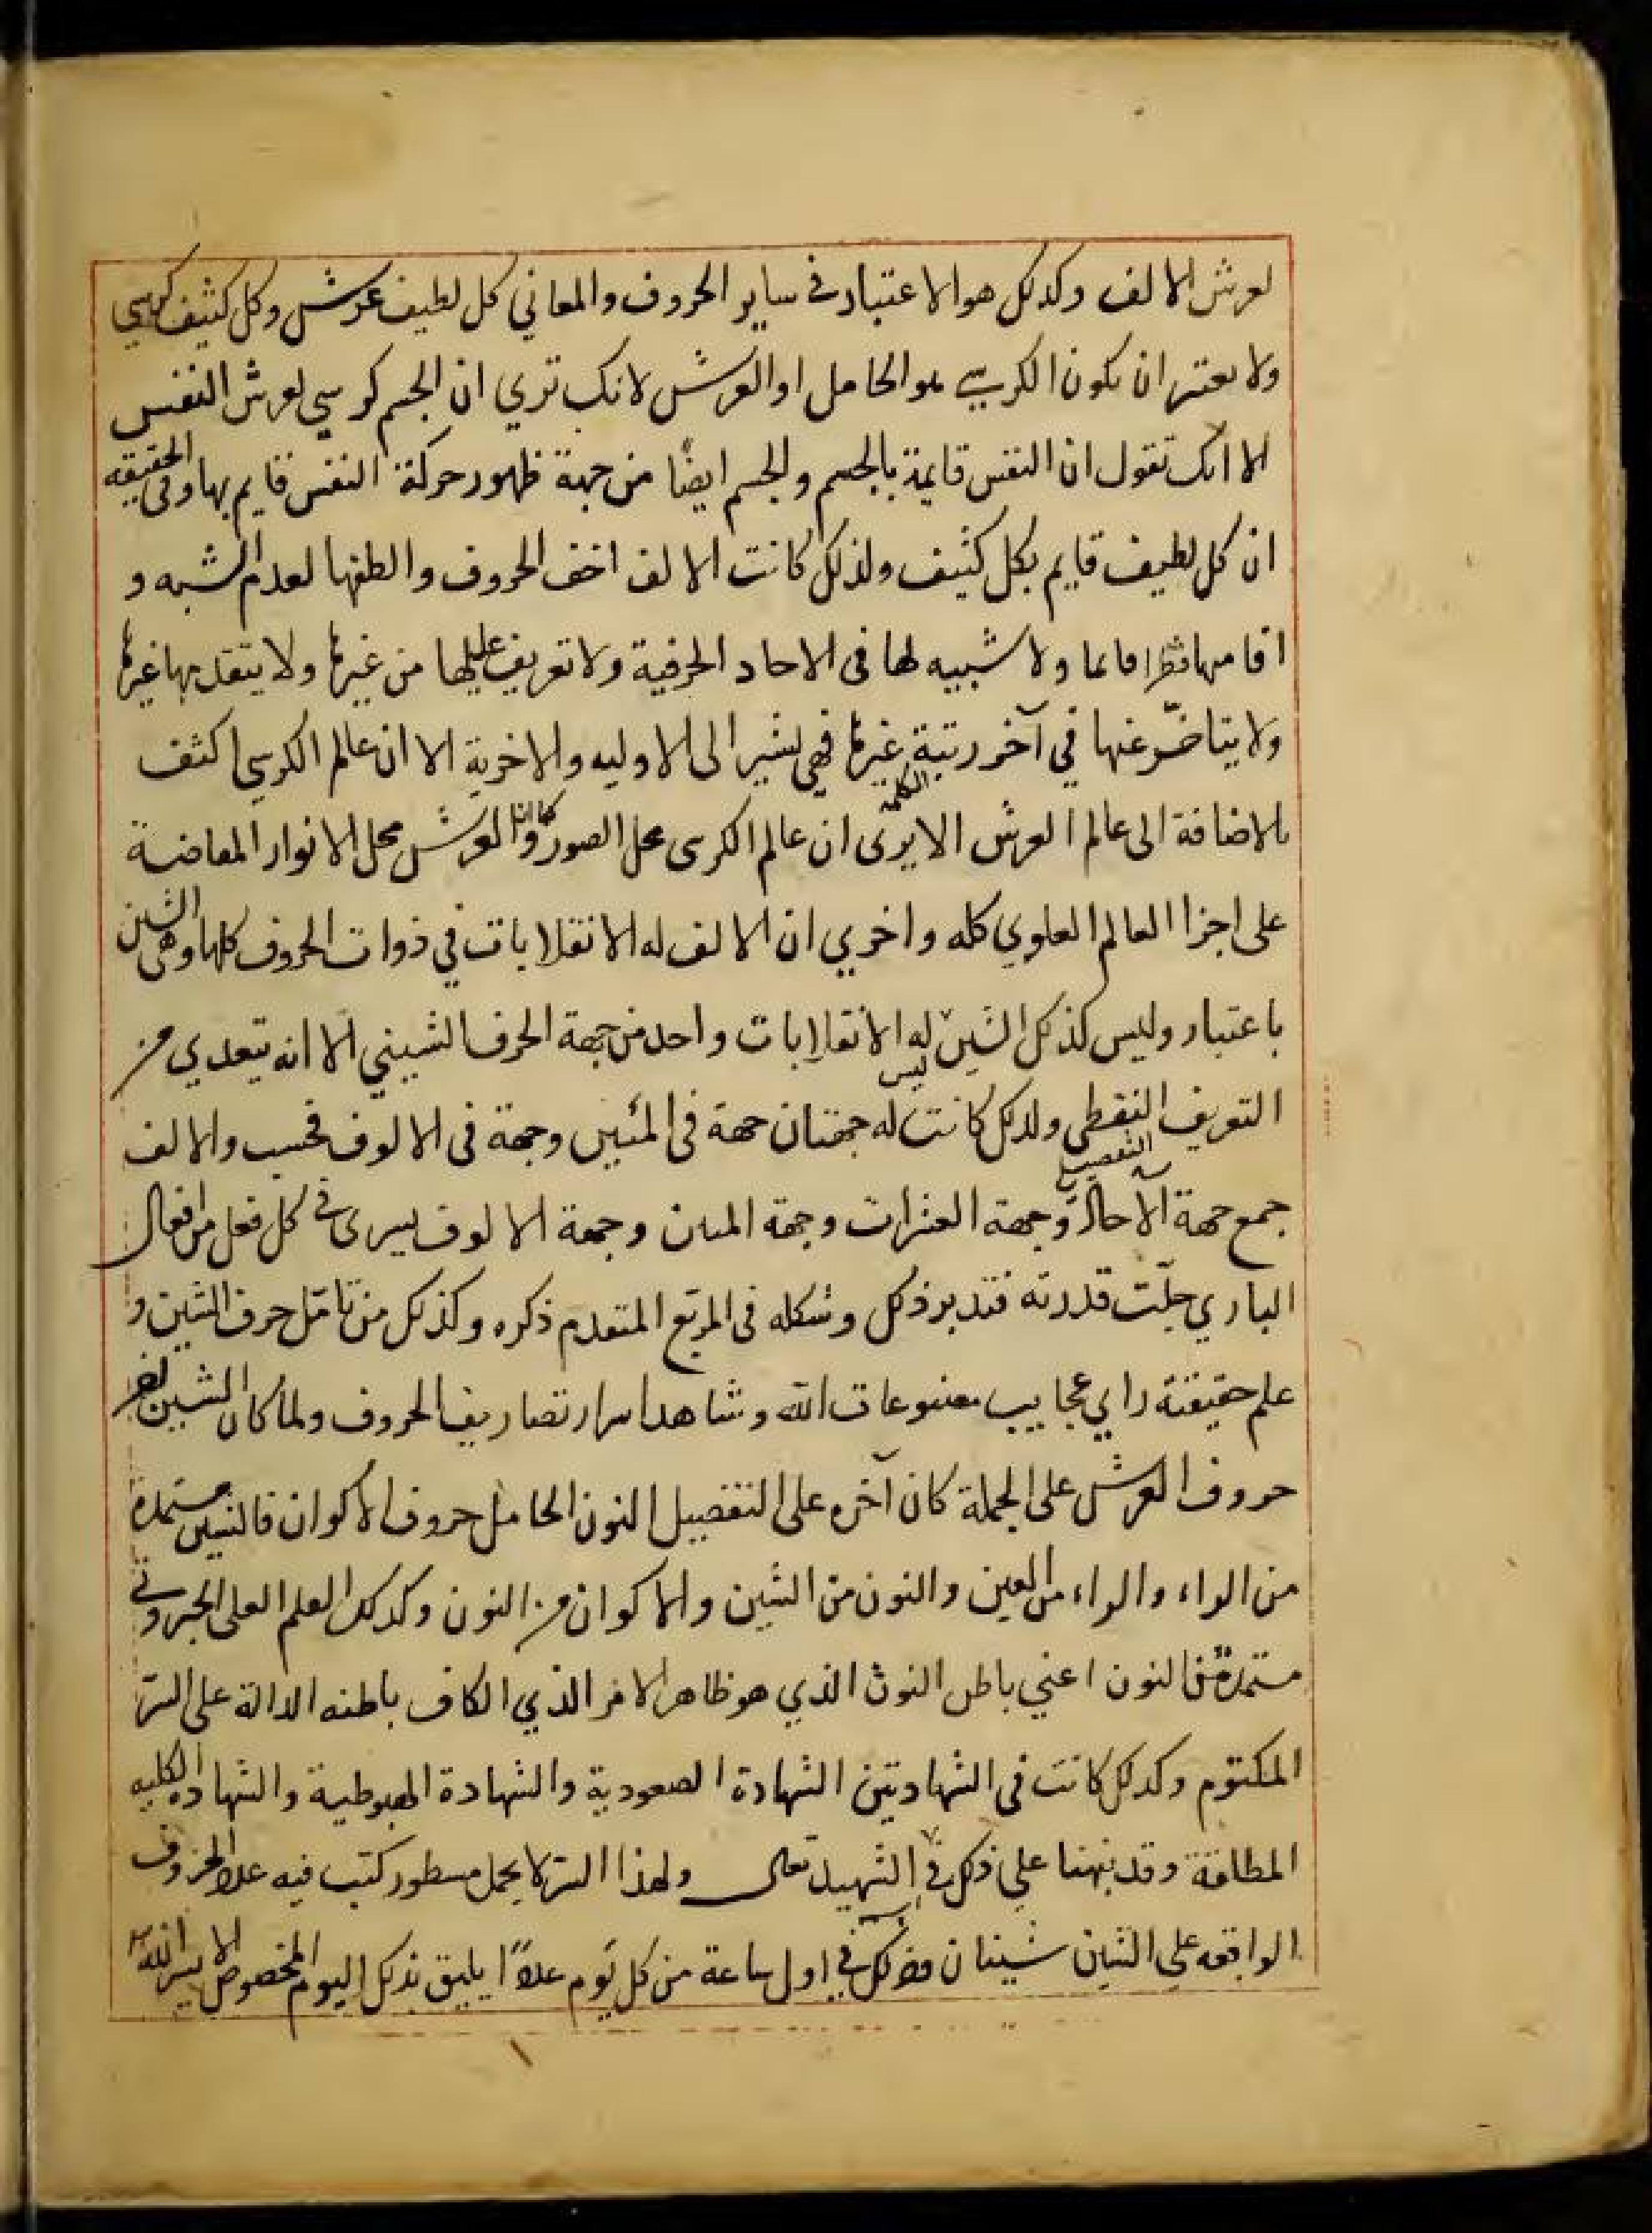 لعرش الالف وكذلك هو الاعتبار في ساير الحروف والمعاني كل لطيف عرش وكل كثيف كرسي
ولا يعتبر ان يكون الكرسي هو الحامل او العرش لانك تري ان الجسم كرسي لعرش النفس
الا انك تقول ان النفس قايمة بالجسم والجسم ايضًا من جهة ظهور حركة النفس قايم بها وفي الحقيقه
ان كل لطيف قايم بكل كثيف ولذلك كانت الالف اخف الحروف والطفها لعدم الشبه و
ولا شبيه لها في الاحاد الحرفية ولا تعريف عليها من غيرها ولا يتقدمها غيرها
ولا يتاخّر عنها في آخر رتبة غيرها فهي تشير الى الاوليه والاخرية الا ان عالم الكرسي اكثف
بالاضافة الى عالم العرش الا يرى ان عالم الكرسى محل الصور العرش محل الانوار المفاضة
على اجزا العالم العلوي كله واخري ان الالف له الانقلابات في ذوات الحروف كلها وهى الشين
باعتبار وليس كذلك الشين ليس له الانقلابات واحد من جهة الحرف الشيني الا انه يتعدي من
التعريف النقطي ولذلك كانت له جهتان جهة في المئين وجهة في الالوف فحسب والالف
جمع جهة الآحاد وجهة العشرات وجهة المئين وجهة الالوف ليسرى في كل فعل من افعال
الباري جلّت قدرته فتدبر ذلك وشكله في المربع المتقدم ذكره وكذلك من تامّل حرف الشين و
علم حقيقته راي عجايب مصنوعات الله وشاهد اسرار تصاريف الحروف ولما كان الشين اخر
حروف العرش على الجملة كان آخره على التفصيل النون الحامل حروف الاكوان فالشين مستمدة
من الراء والراء من العين والنون من الشين والاكوان من النون وكذلك العلم العلى الجبروتي
مستمدة من النون اعني باطن النون الذي هو ظاهر الامر الذي الكاف باطنه الدالة على السّر
المكتوم وكذلك كانت في الشهادتين الشهادة الصعودية والشهادة الهبوطية والشهادة الكليه
المطلقة وقد نبهنا على ذلك في الشهيد تعالى ولهذا السر لا يحمل مسطور كتب فيه علا الحروف
الواقعه على الشين شينان وذلك في اول ساعة من كل يوم علاً يليق بذلك اليوم المخصوص الا يسر الله